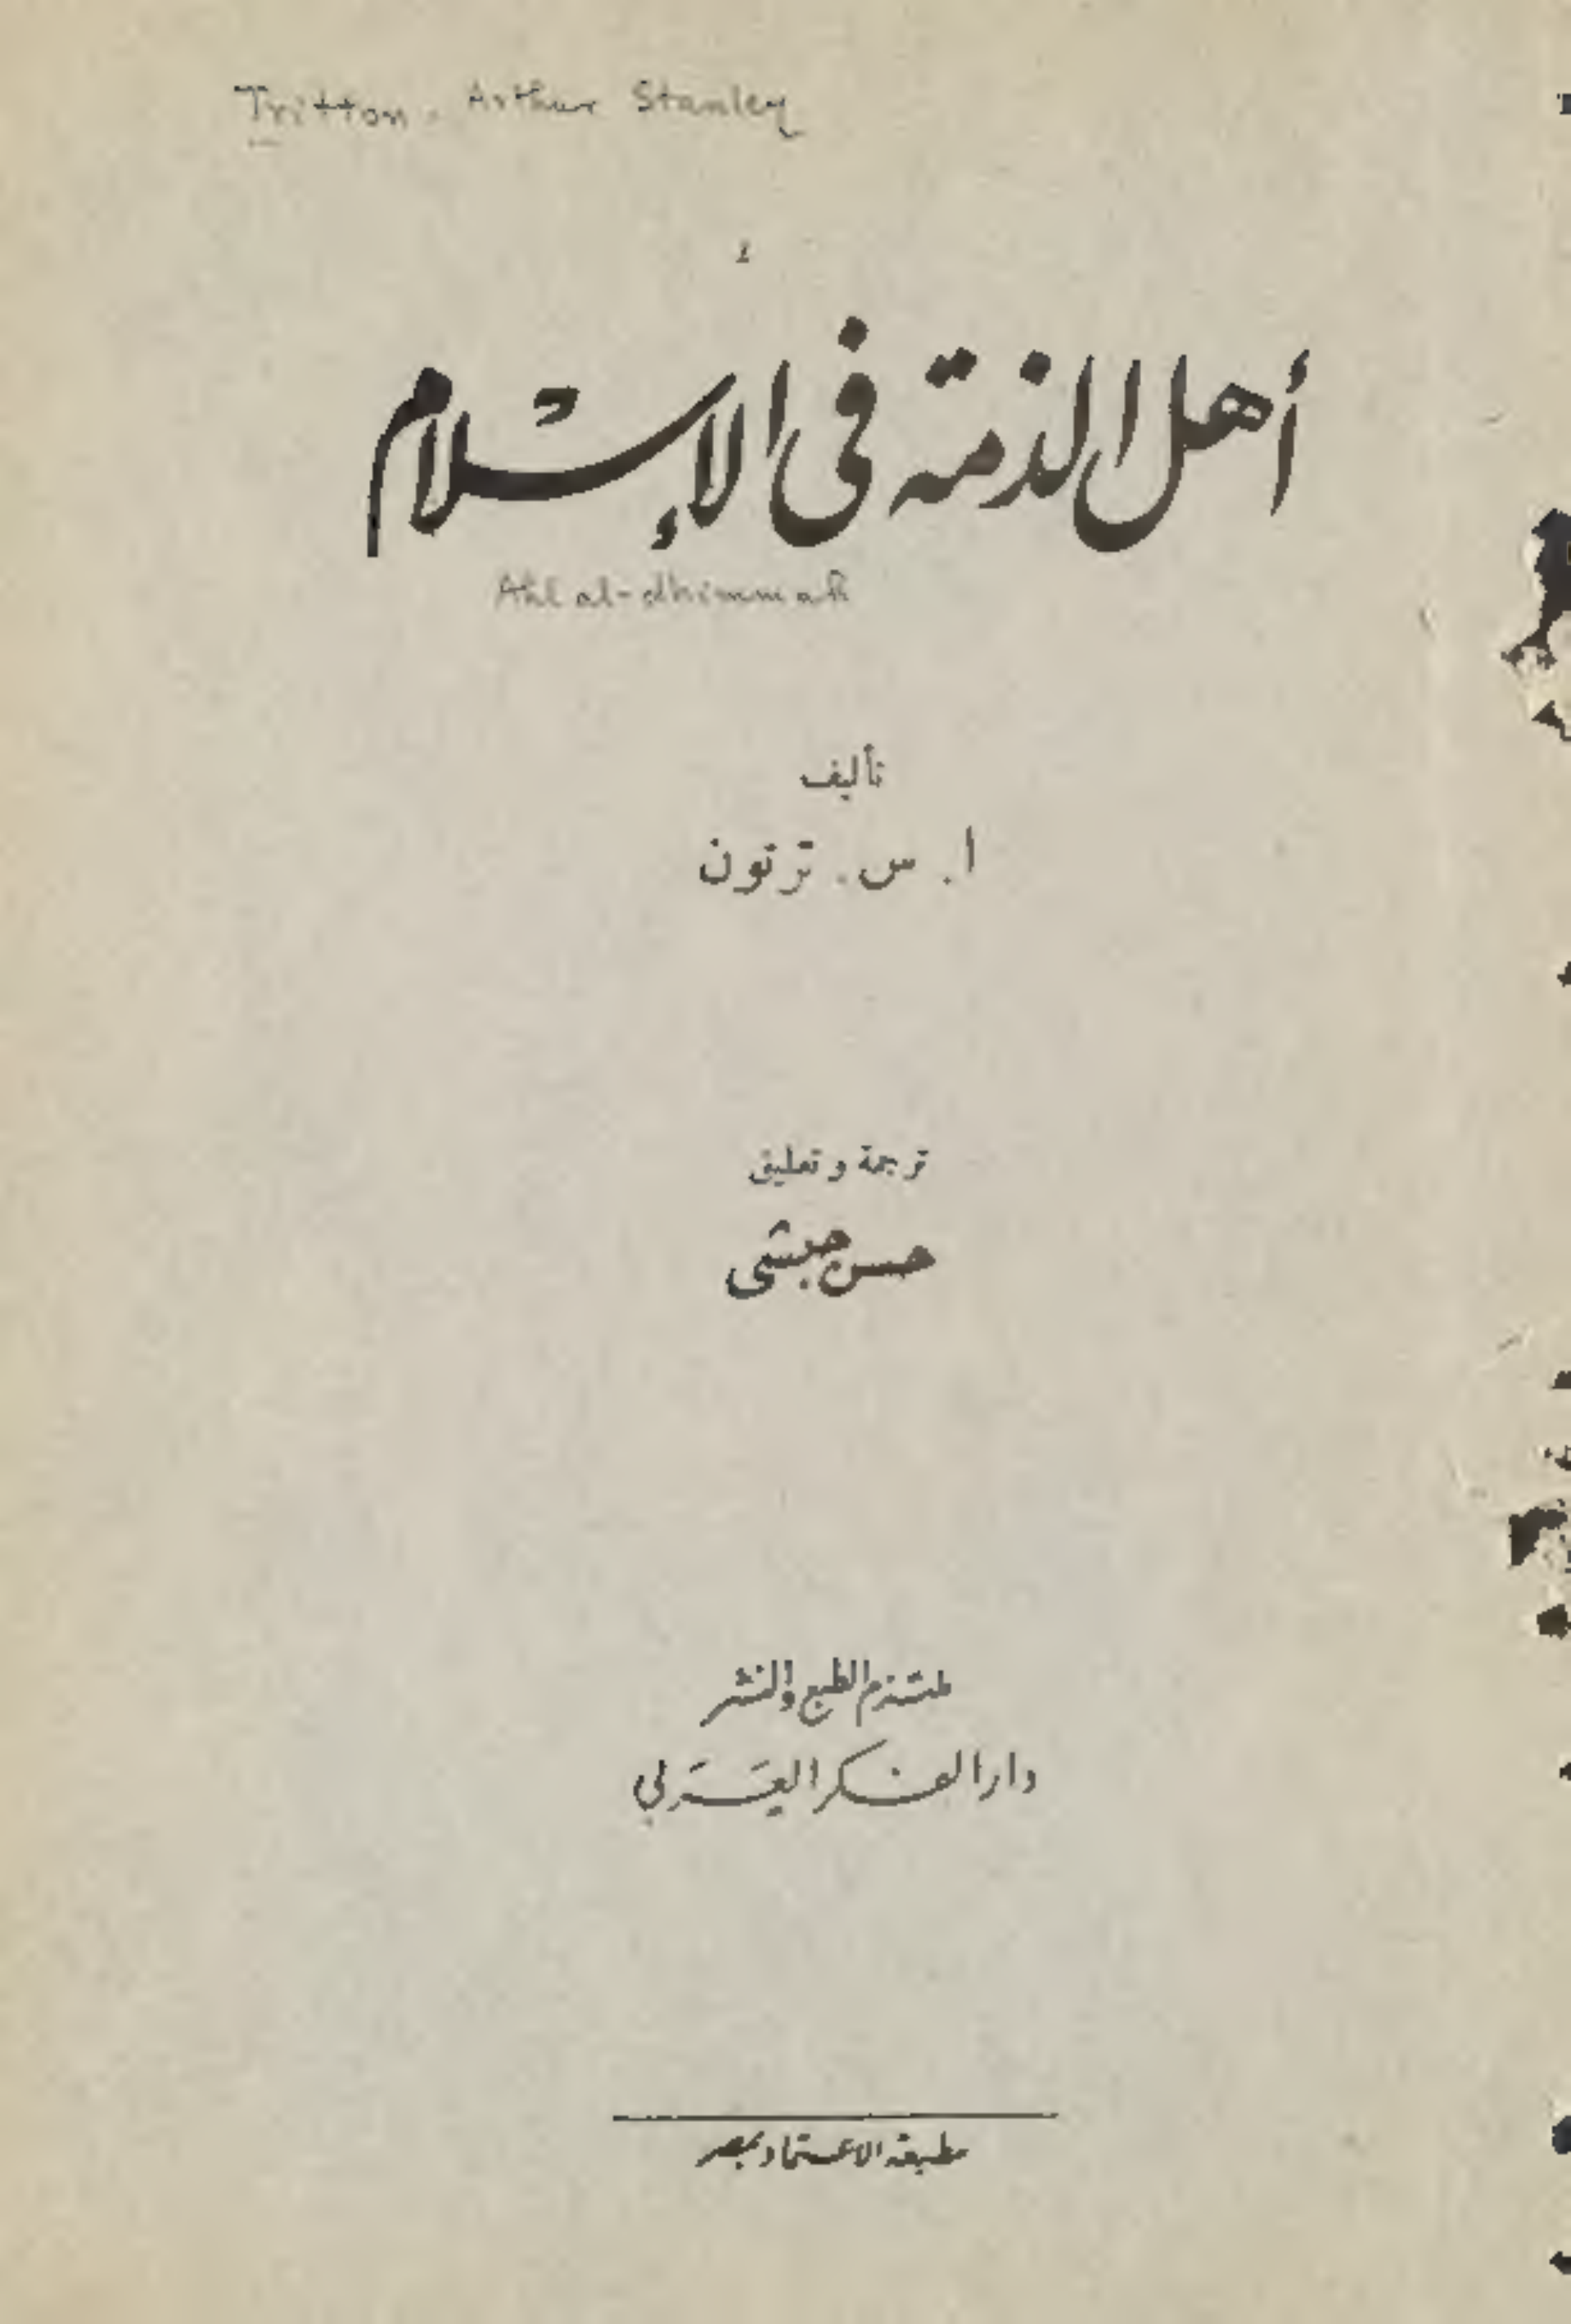 Tritton, Arthur Stanley
أهل الذمة فى الإسلام
Ahl al-dhimmah
تأليف
ا. س. ترتون
ترجمة وتعليق
حسن حبشى
ملتزم الطبع والنشر
دار الفكر العربي
مطبعة الاعتماد بمصر